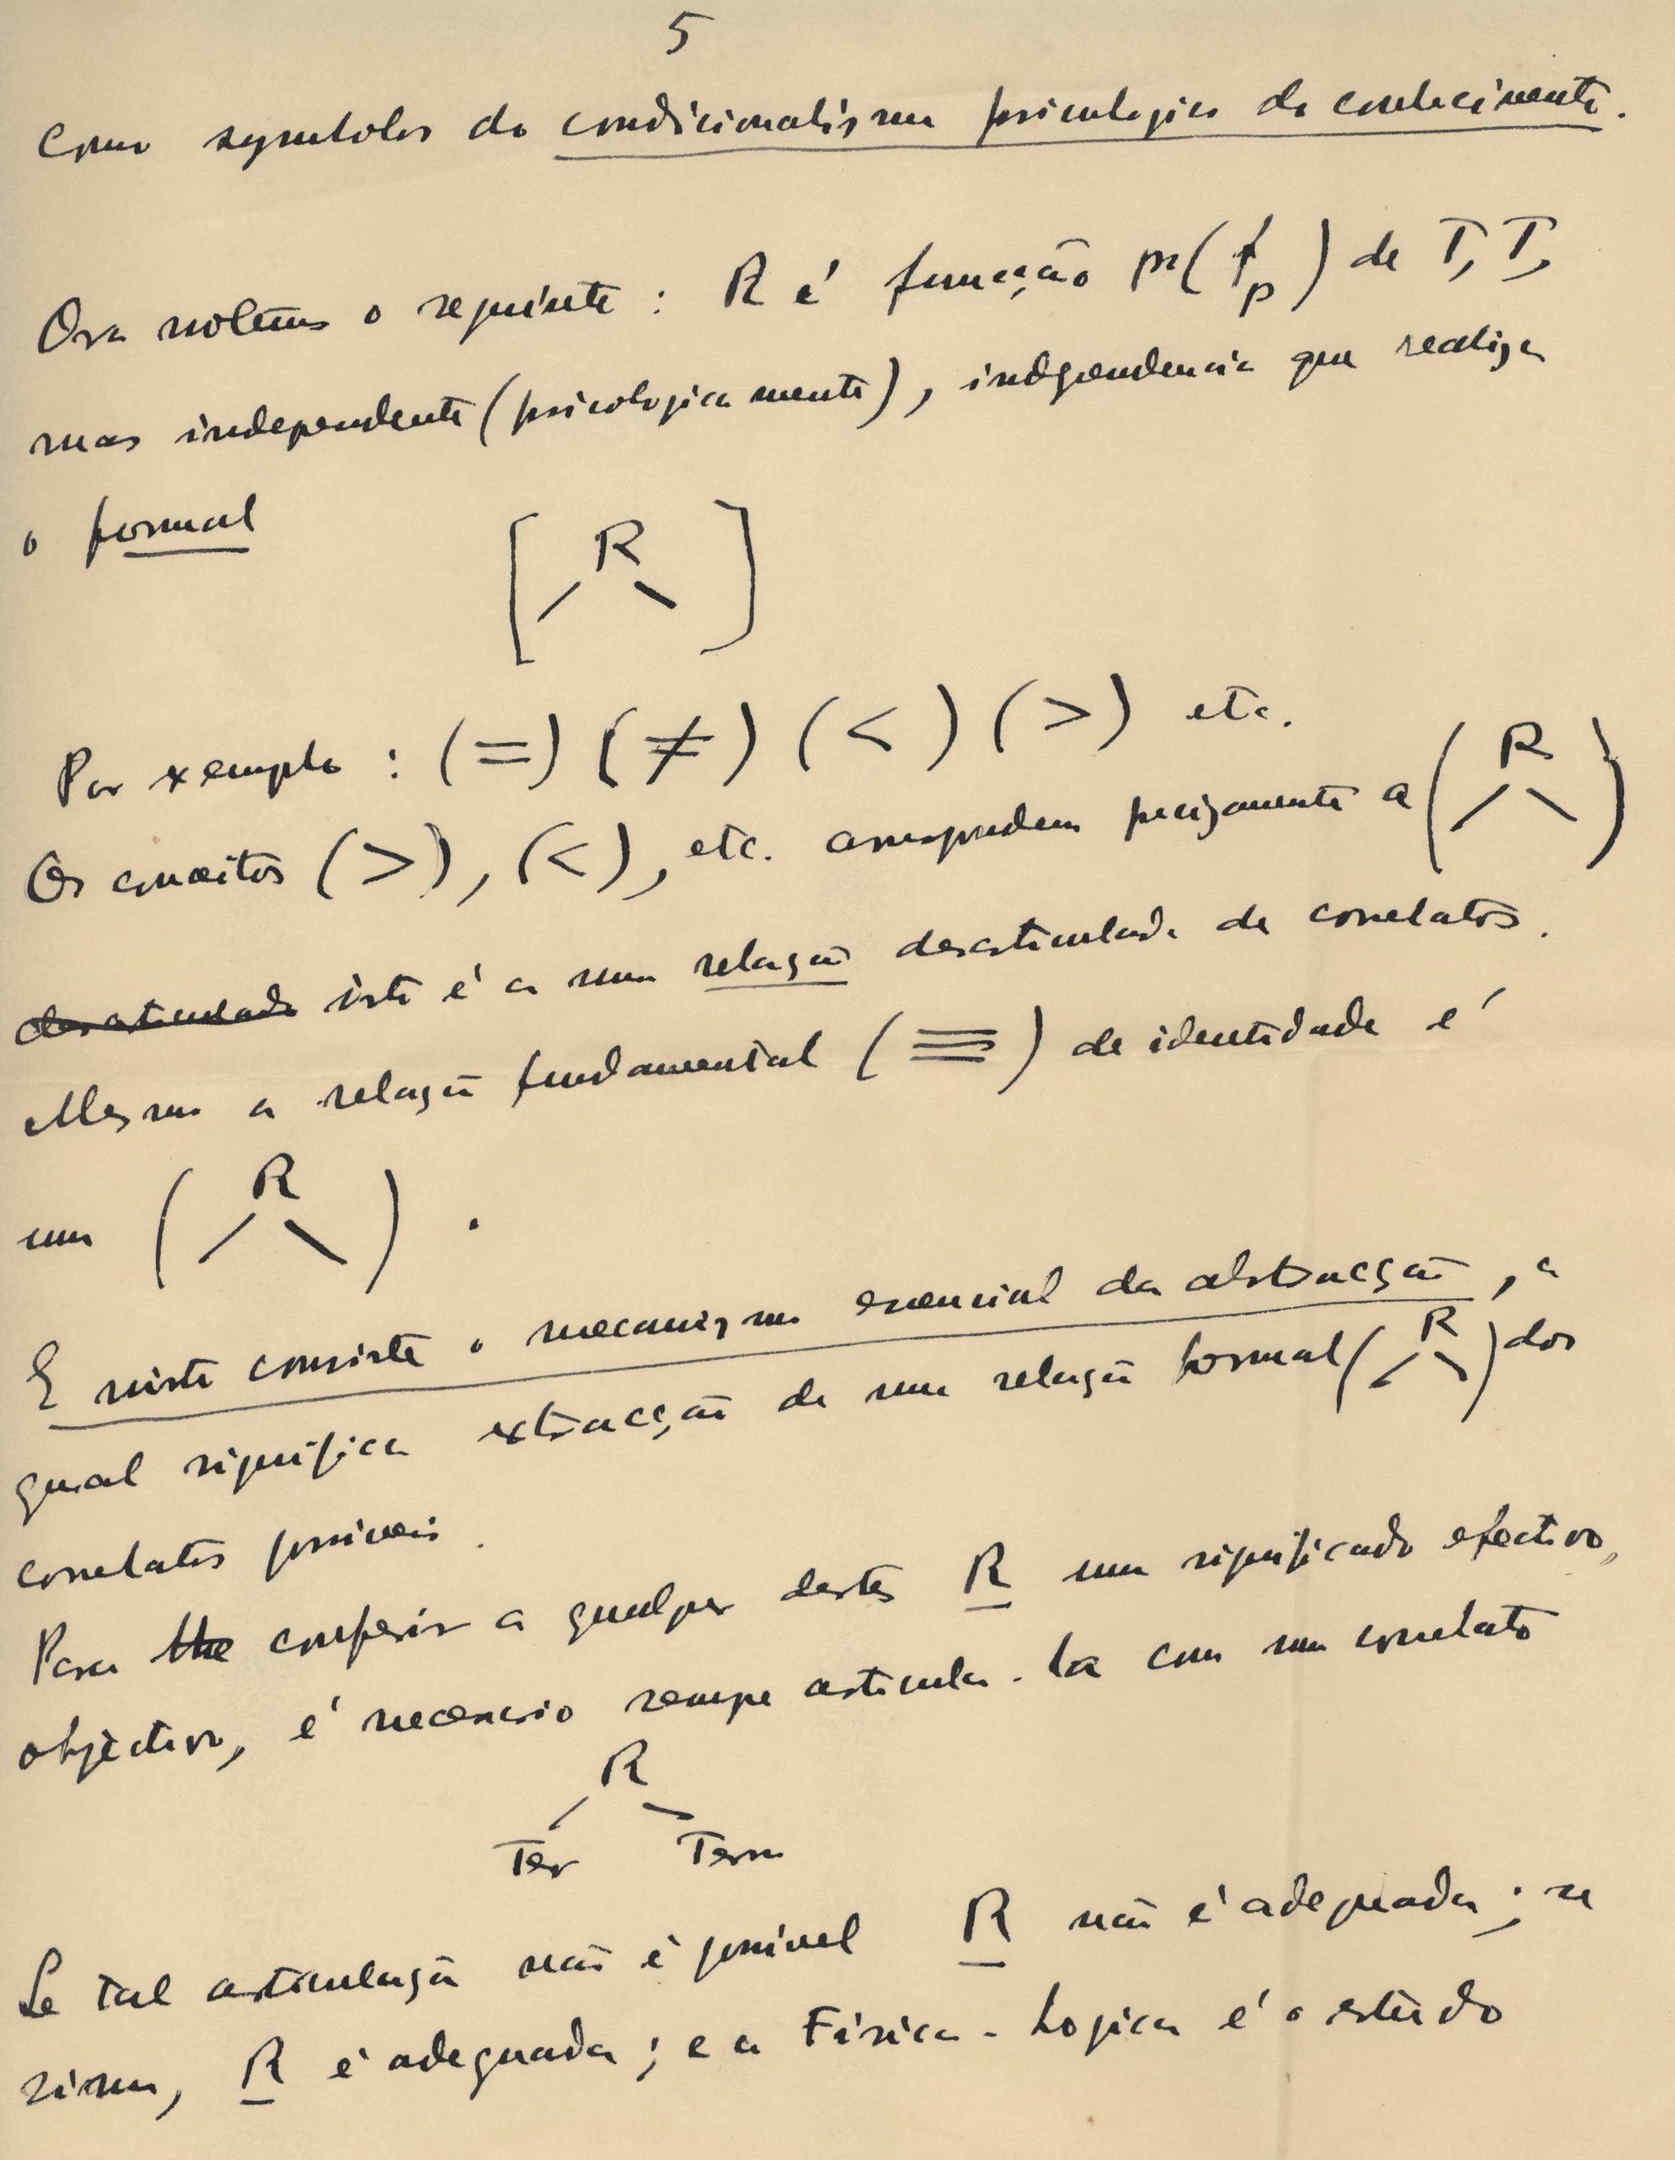 5
como symbolos do condicionalismo psicologico do conhecimento.
Ora notemos o seguinte : R é funcção ps( f p ) de T, T,
mas independente (psicologicamente), independencia que realiza
o formal
[ R ]
Por exemplo : (=) (≠) (<) (>) etc.
Os conceitos (>), (<), etc. correspondem precizamente a ( R )
desarticulado isto é a uma relação desarticulada de correlatos.
Mesmo a relação fundamental (≡) de identidade é
um ( R ) .
E nisto consiste o mecanismo essencial da abstracção, a
qual significa extracção de uma relação formal ( R ) dos
correlatos possiveis.
Para lhe conferir a qualquer destes R um significado efectivo,
objectivo, é necessario sempre articula-la com um correlato
R
Ter Term
Se tal articulação não é possivel R não é adequada ; se
sim, R é adequada ; e a Fisica-Logica é o estudo